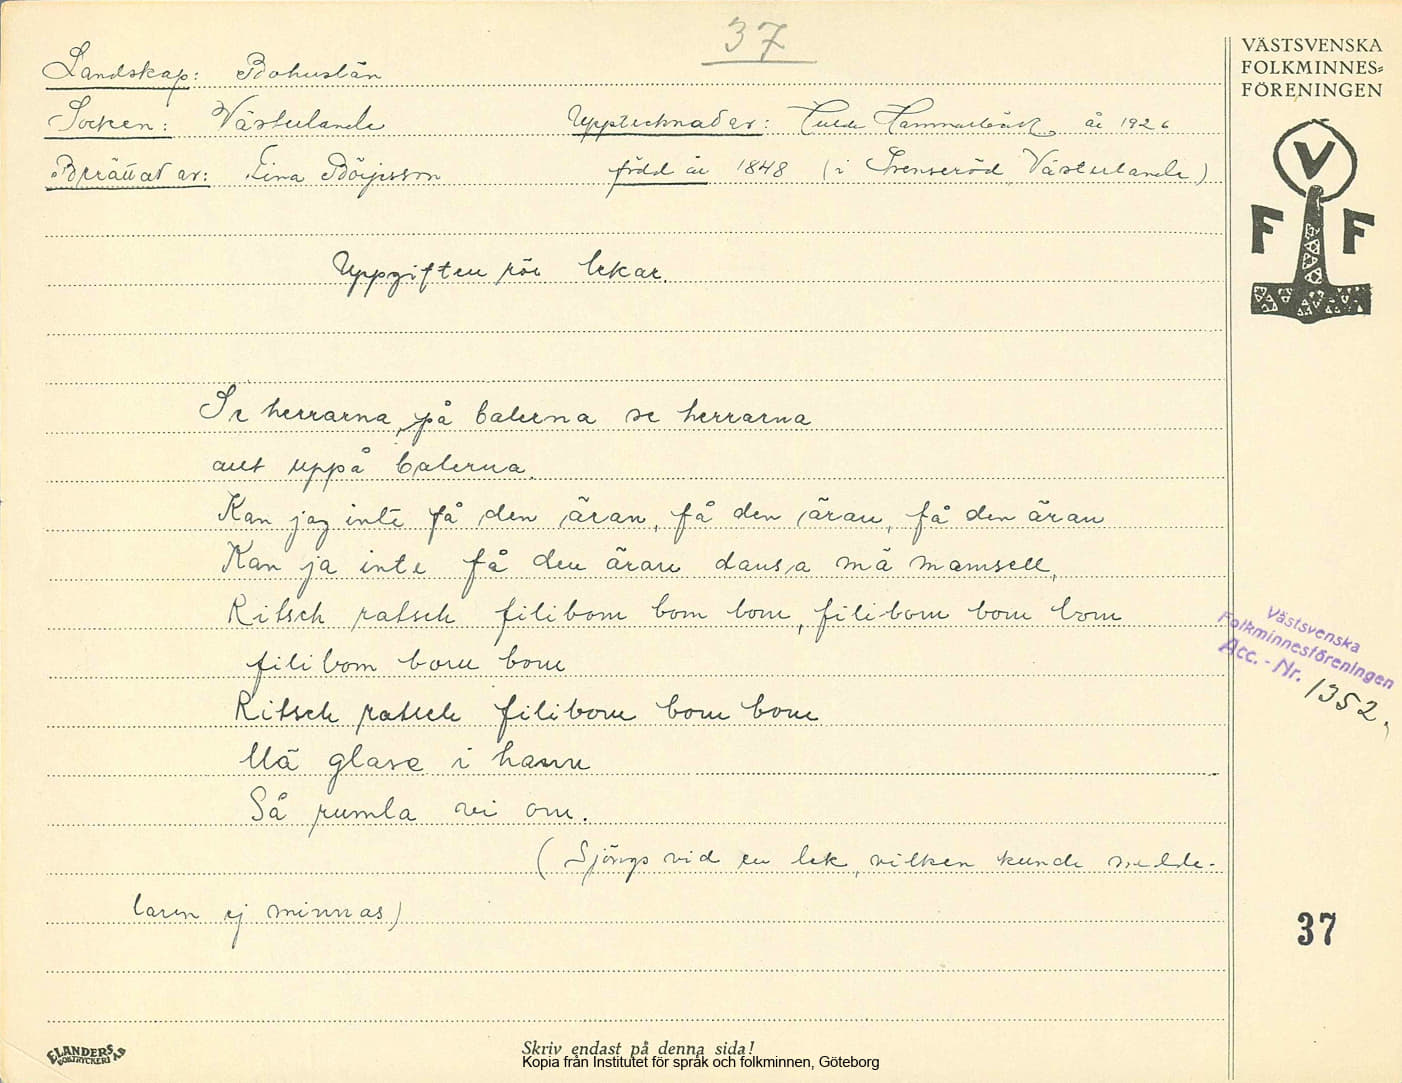 37
VÄSTSVENSKA
FOLKMINNES=
FÖRENINGEN
Landskap: Bohuslän
Socken: Västerlanda Upptecknat av: Hulda Hammarbäck år 1926
Berättat av: Lina Börjesson född år 1848 (i Grenseröd Västerlanda)
V
F F
Uppgiften rör lekar.
Se herrarna på balerna se herrarna
aut uppå balerna.
Kan jag inte få den äran, få den äran, få den äran
Kan ja inte få den äran dansa mä mamsell,
Ritsch ratsch filibom bom bom, filibom bom bom
filibom bom bom
Ritsch ratsch filibom bom bom
Mä glase i hann
Så rumla vi om.
(Sjöngs vid en lek, vilken kunde medde-
laren ej minnas)
Västsvenska
Folkminnesföreningen
Acc. - Nr. 1352.
37
ELANDERS
BOKTRYCKERI AB
Skriv endast på denna sida!
Kopia från Institutet för språk och folkminnen, Göteborg